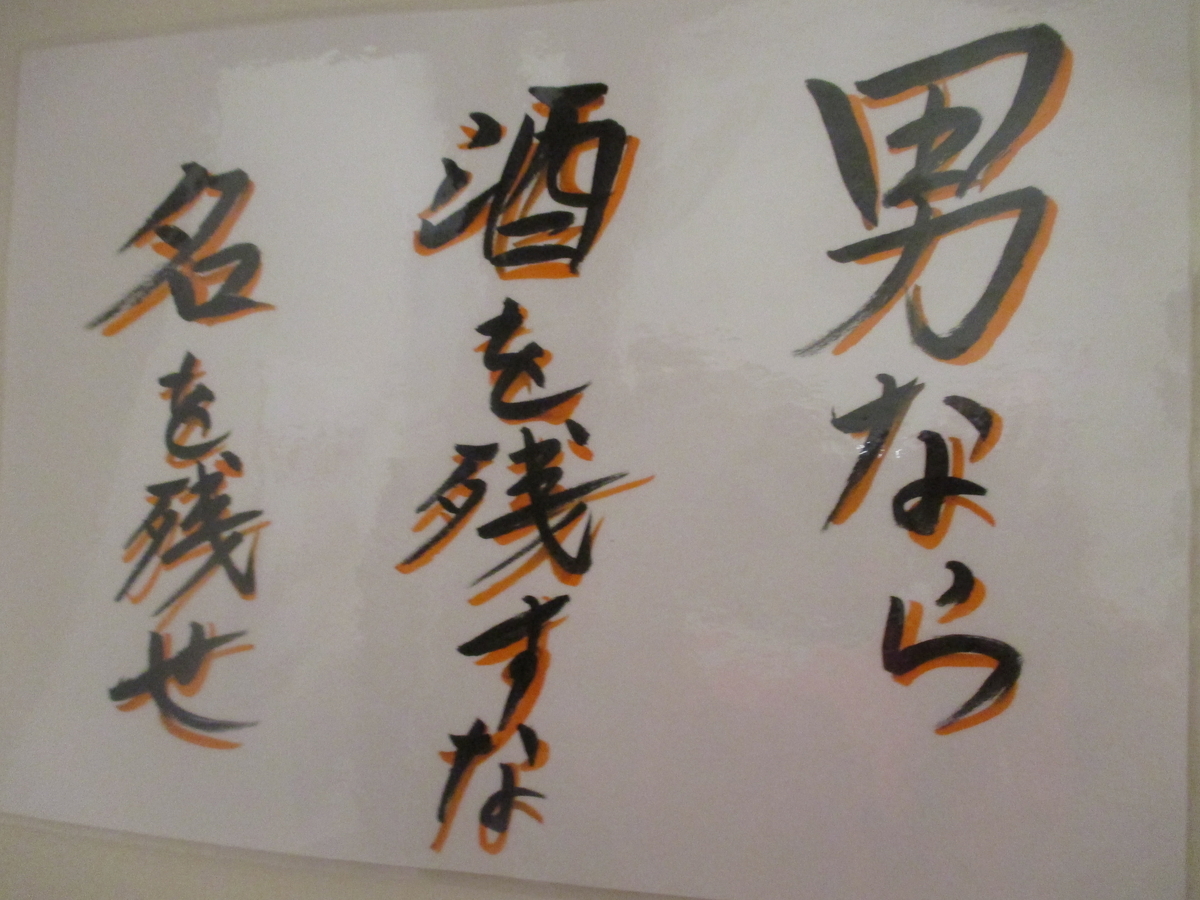 男なら
酒を残すな
名を残せ